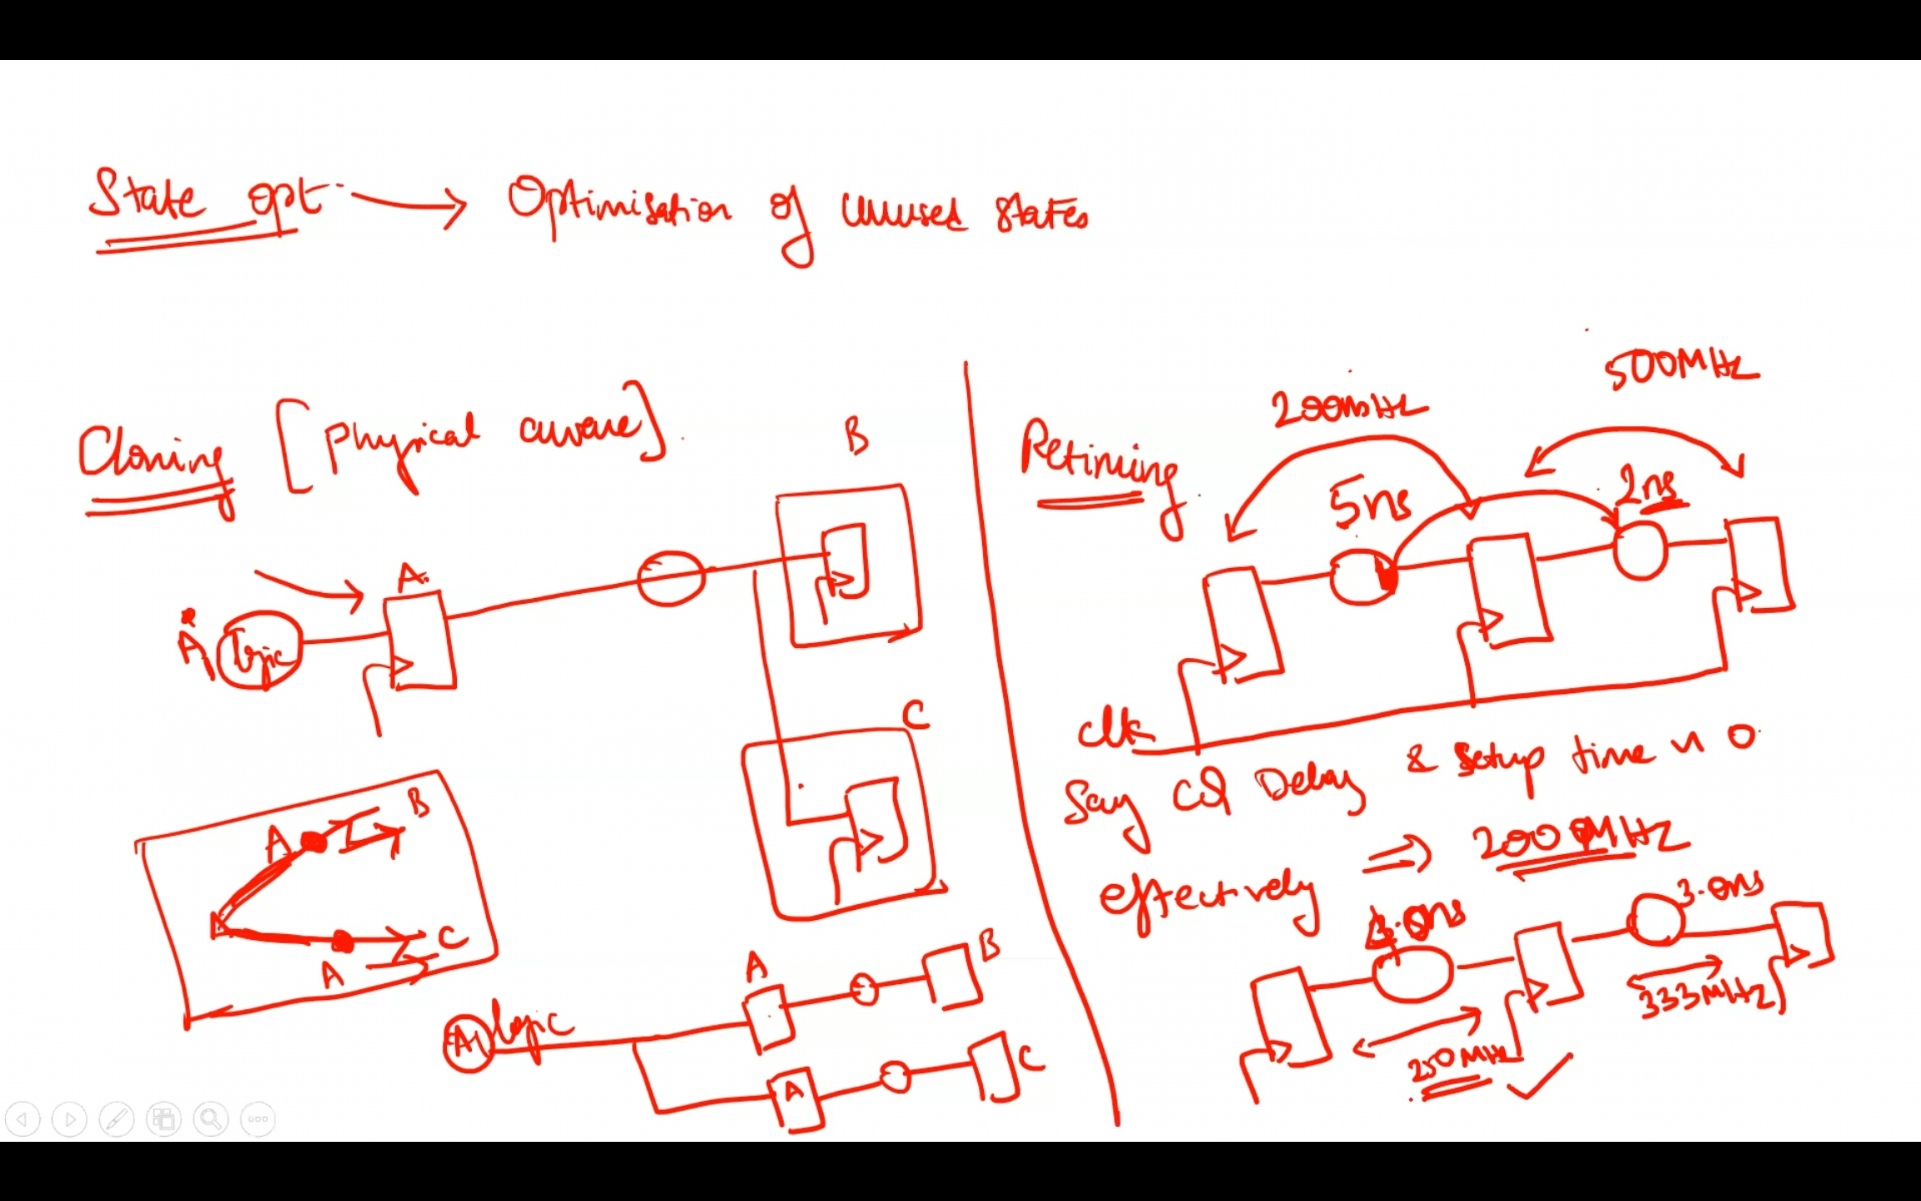 State opt → Optimisation of unused states
Cloning [Physical aware]
B
A.
A1
logic
C
A
B
A
A
C
A1
logic
A
B
A
C
Retiming
200MHz
500MHz
5ns
2ns
clk
Say CQ Delay & setup time 0
effectively ⇒ 200MHz
.0ns
3.0ns
250MHz
333MHz